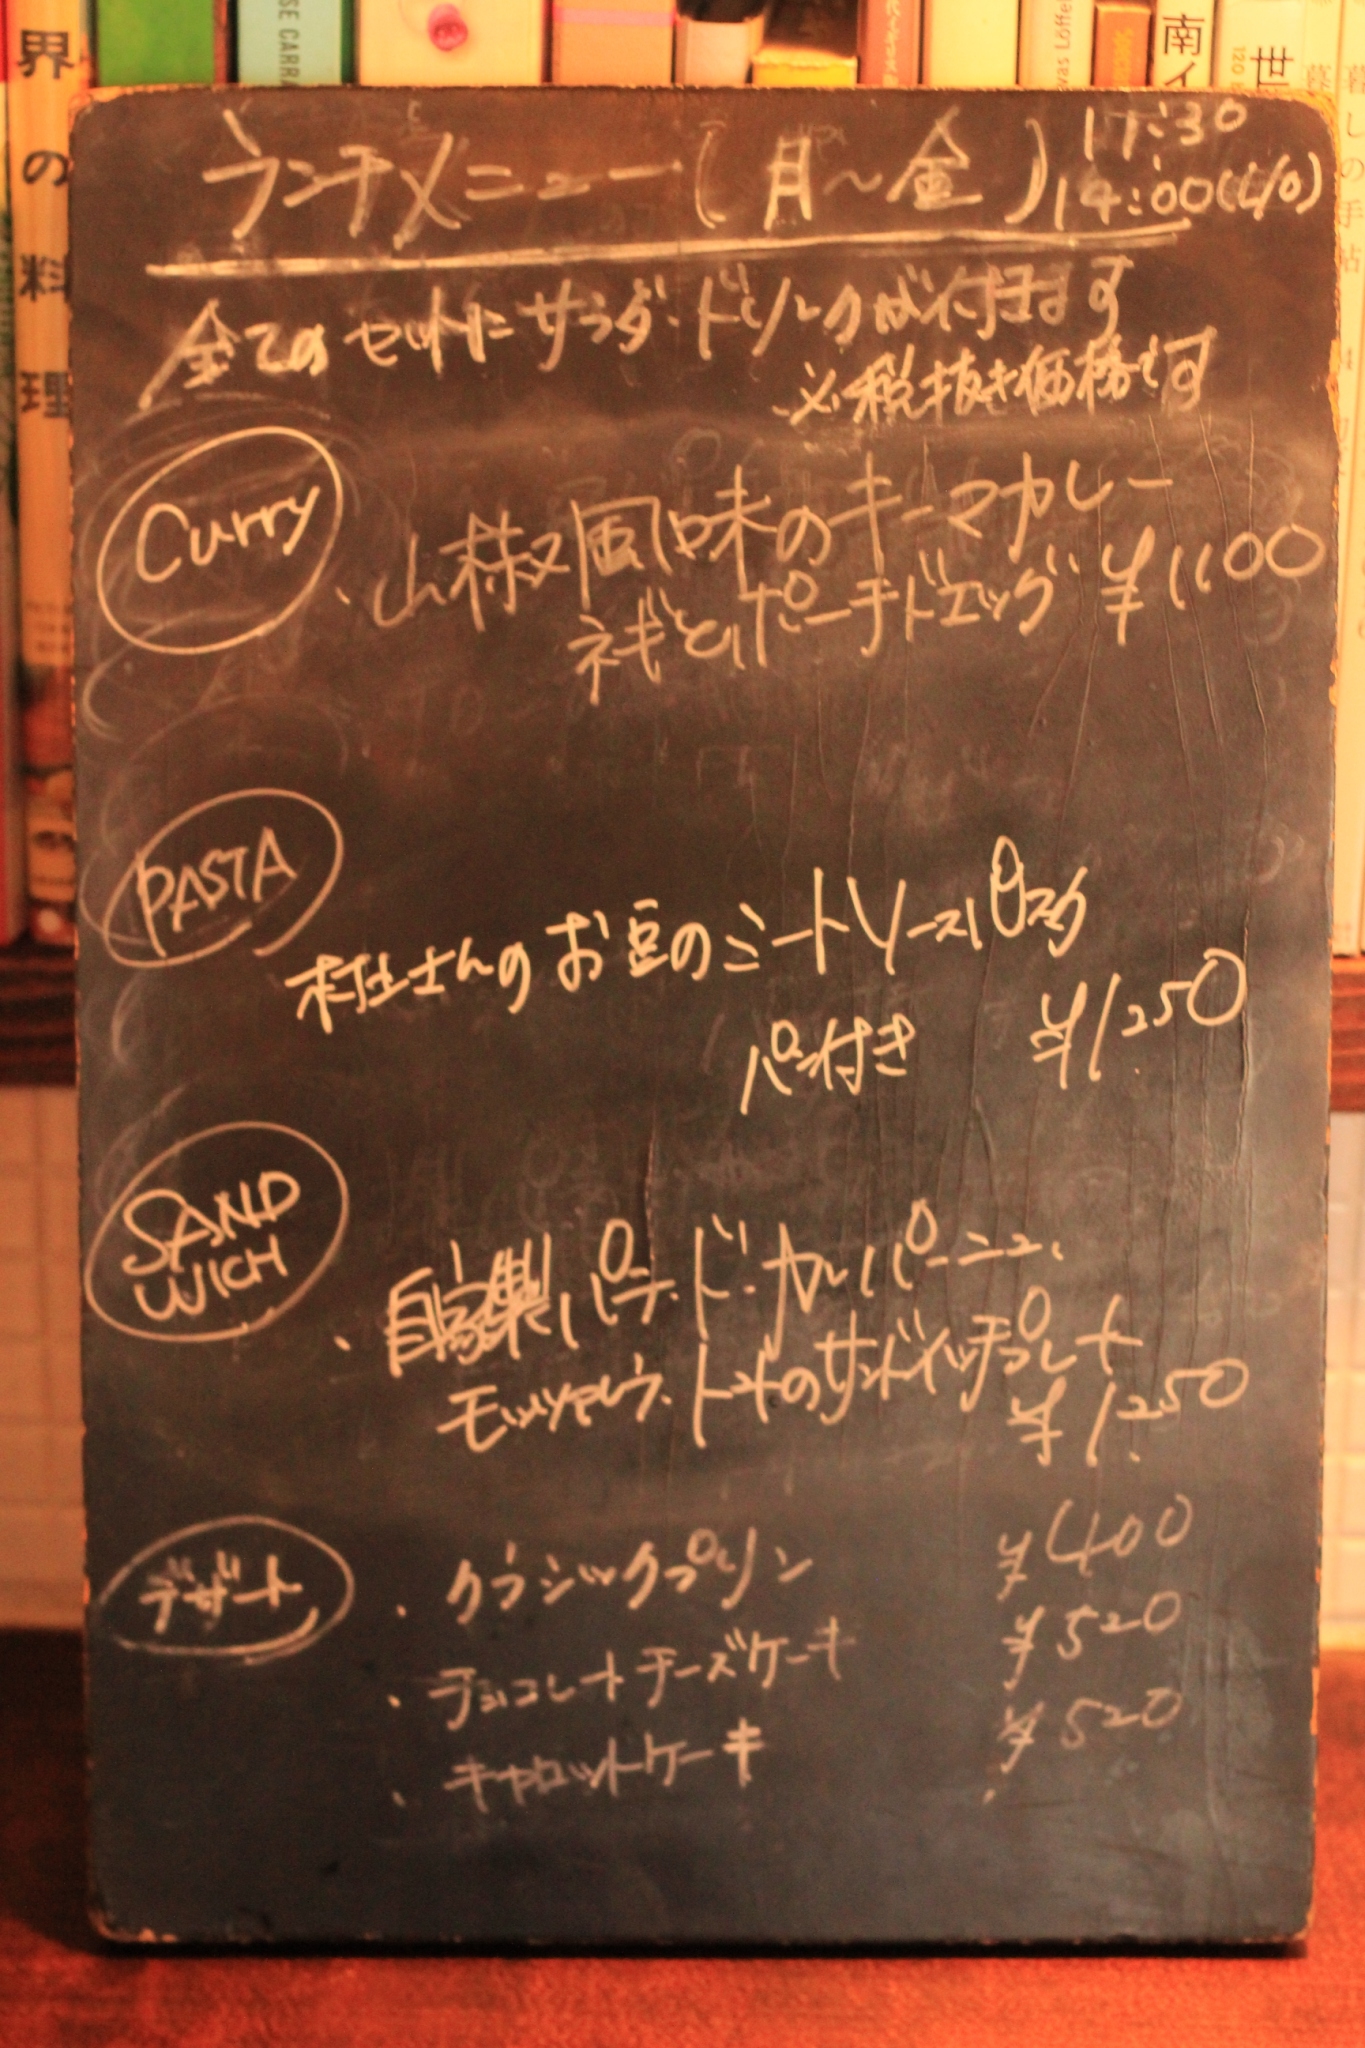 界の料理
SE CARRA
vas Löffel
南イ
世
120
暮しの手帖
ランチメニュー(月〜金) 11:30
14:00(L/O)
全てのセットにサラダ・ドリンクが付きます
※税抜き価格です
Curry
・山椒風味のキーマカレー
ネギとポーチドエッグ ¥1100
PASTA
村上さんのお豆のミートソースパスタ
パン付き ¥1250
SAND
WICH
・自家製パテ・ド・カンパーニュ、
モッツァレラ、トマトのサンドイッチプレート
¥1250
デザート
・クラシックプリン ¥400
・チョコレートチーズケーキ ¥520
・キャロットケーキ ¥520